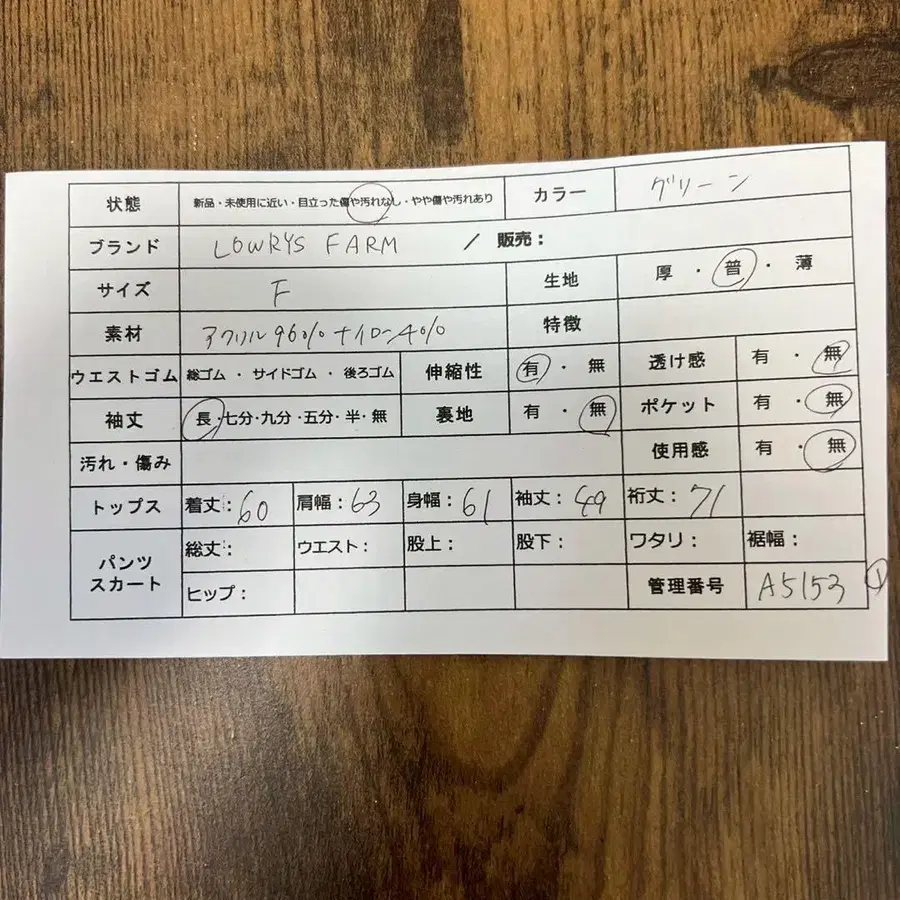 状態 新品・未使用に近い・目立った傷や汚れなし・やや傷や汚れあり カラー グリーン
ブランド LOWRYS FARM / 販売：
サイズ F 生地 厚・普・薄
素材 アクリル96% ナイロン4% 特徴
ウエストゴム 総ゴム・サイドゴム・後ろゴム 伸縮性 有・無 透け感 有・無
袖丈 長・七分・九分・五分・半・無 裏地 有・無 ポケット 有・無
汚れ・傷み 使用感 有・無
トップス 着丈：60 肩幅：63 身幅：61 袖丈：49 裄丈：71
パンツ スカート 総丈： ウエスト： 股上： 股下： ワタリ： 裾幅：
ヒップ： 管理番号 A5153 ①